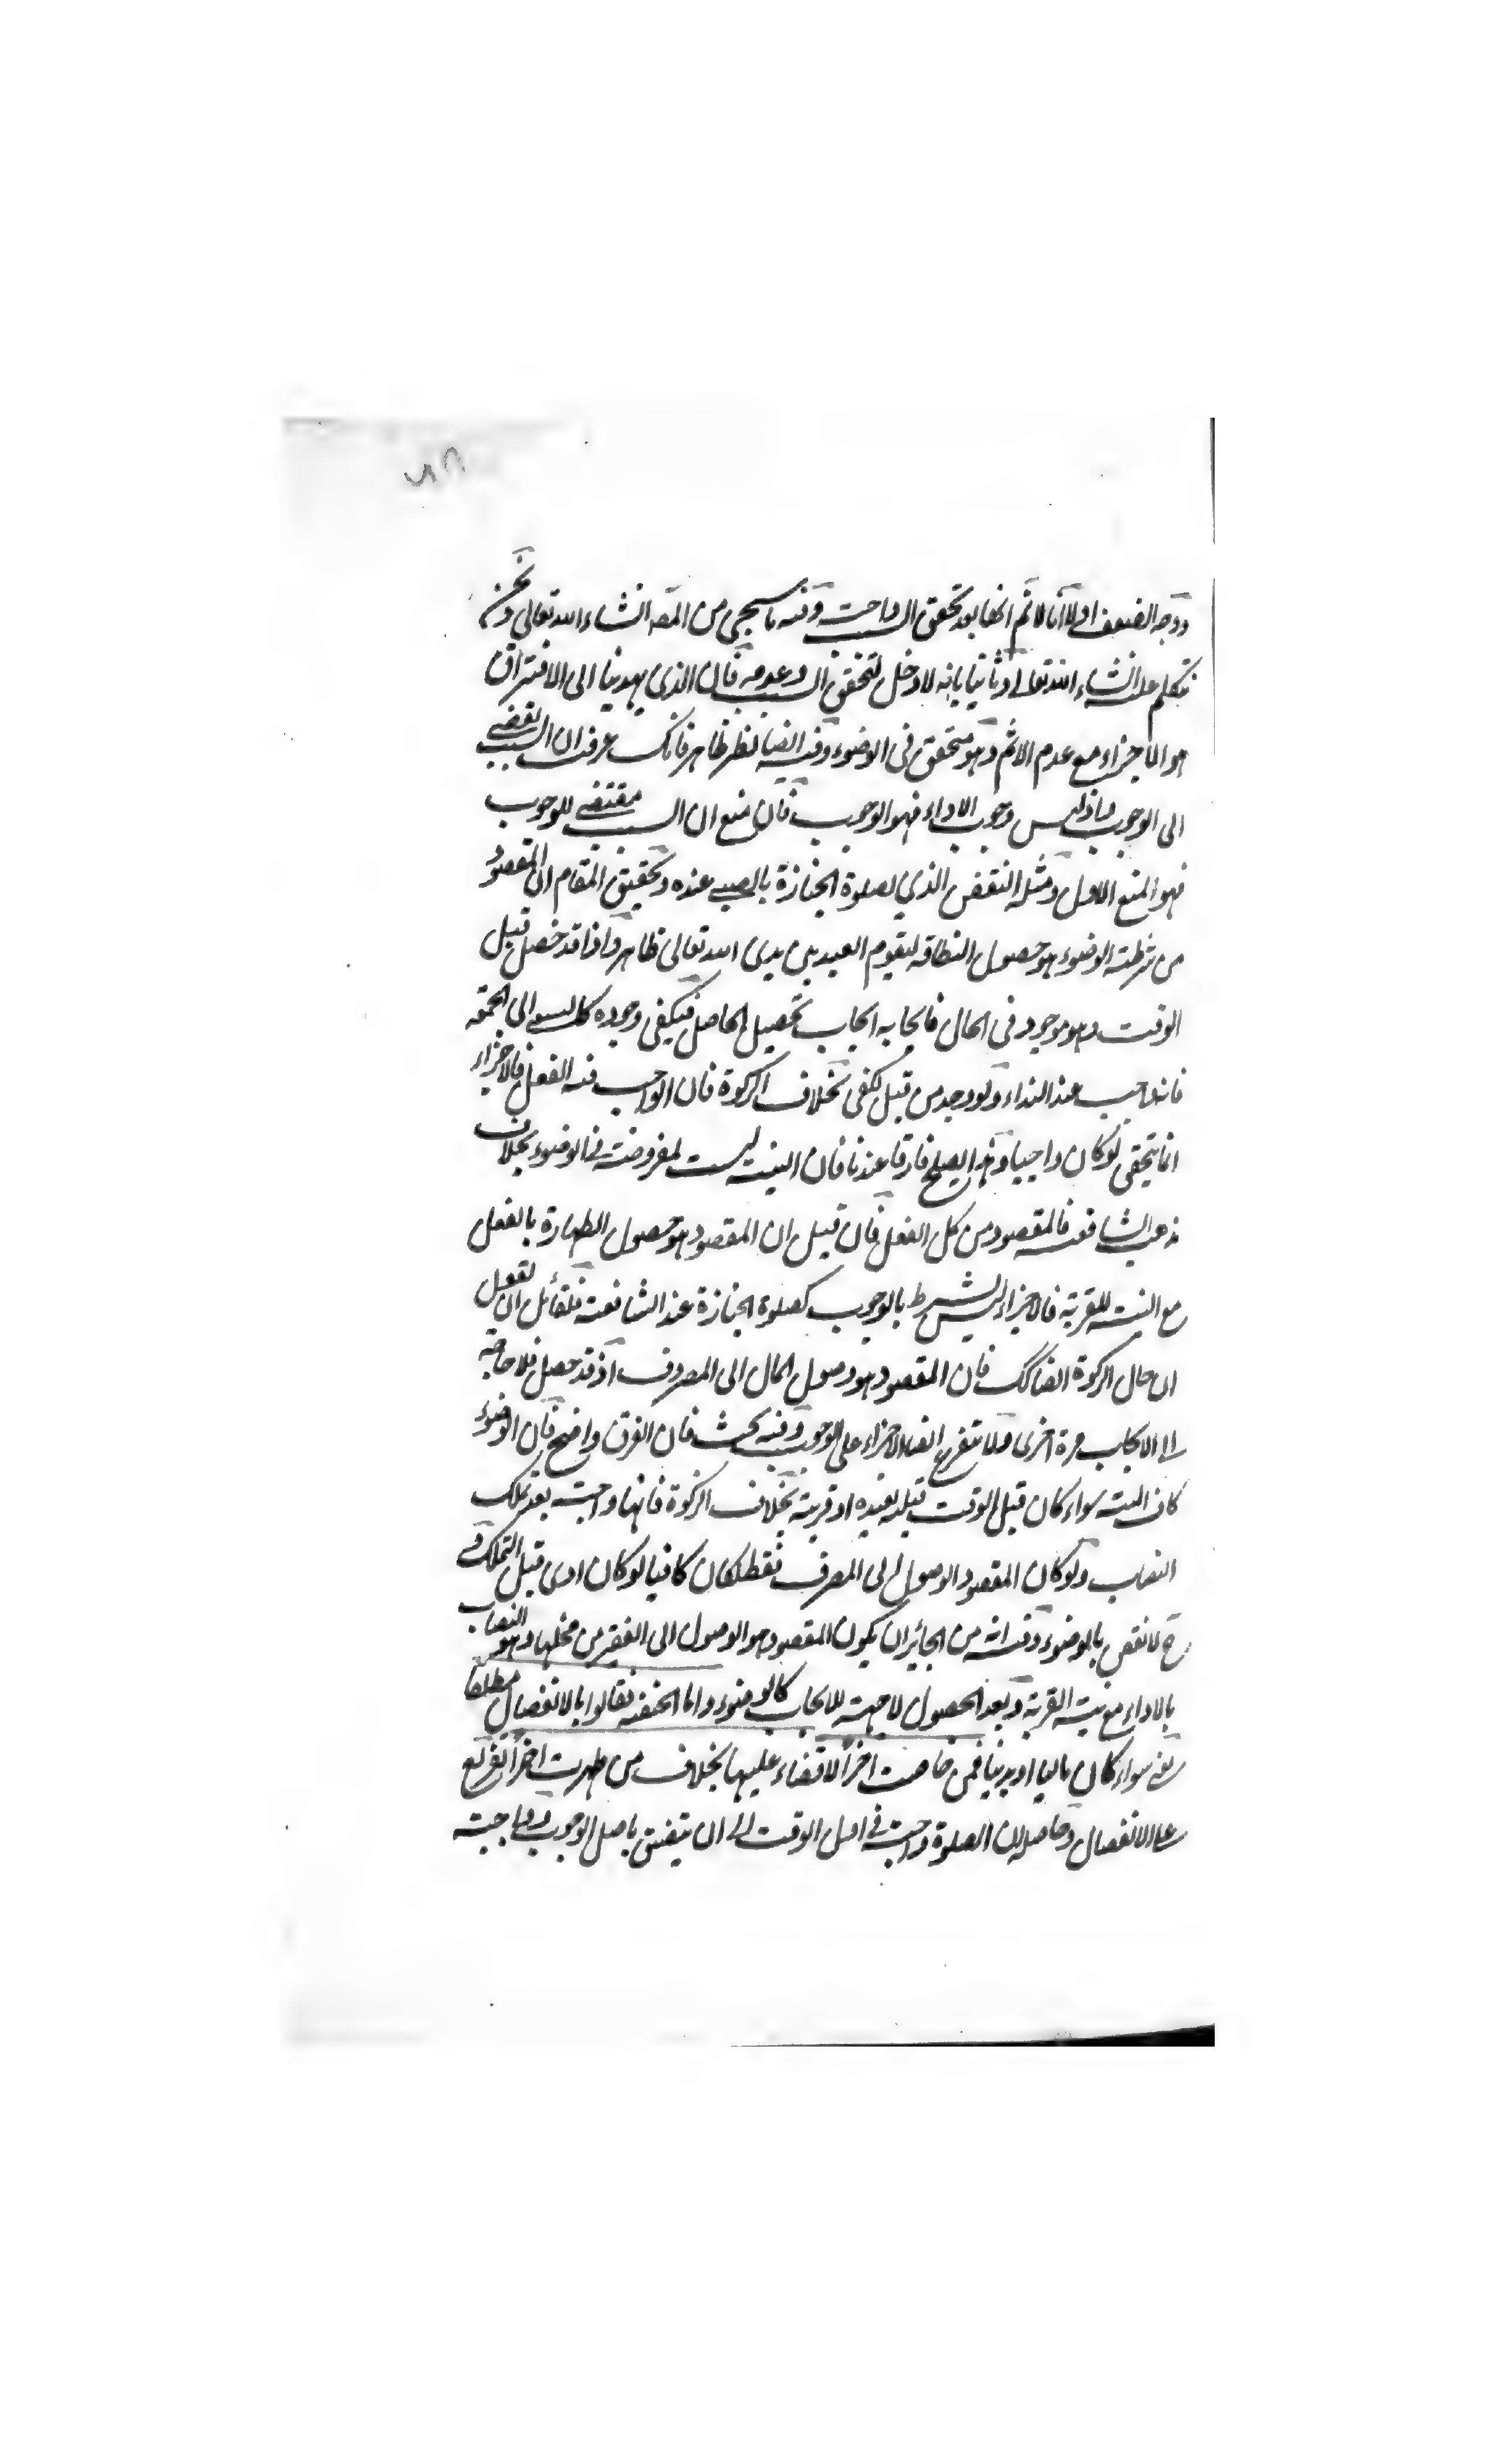 ووجه الضعف اولا انا لا ثم انها بعد تحقق السبب واجب وفيه ما سيجئ من المص انشاء الله تعالى ونحن
نتكلم عليه انشاء الله تعالى وثانيا بانه لا دخل لتحقق السبب وعدمه فان الذي يهدينا الى الافتراق
هو الاجزاء مع عدم الاثم وهو متحقق في الوضوء وفيه ايضا نظر ظاهر فانك عرفت ان السبب يفضي
الى الوجوب واذ ليس وجوب الاداء فهو الوجوب فان منع ان السبب مقتضى للوجوب
فهو المنع الاول ومثله النقض الذي لصلوة الجنازة بالصبي عنده وتحقيق المقام ان المقصود
من شرطية الوضوء هو حصول النظافة ليقوم العبد بين يدي الله تعالى طاهرا واذا قد حصل قبل
الوقت وهو موجود في الحال فايجابه ايجاب تحصيل الحاصل فيكفي وجوده كالسعي الى الجمعة
فانه واجب عند النداء ولو وجد من قبل لكفى بخلاف الزكوة فان الواجب فيه الفعل فالاجزاء
انما يتحقق لو كان واجبا وهذا يصلح فارقا عندنا فان النية ليست بمفروضة في الوضوء بخلاف
مذهب الشافعية فالمقصود من كل الفعل فان قيل ان المقصود هو حصول الطهارة بالفعل
مع النية للقربة فالاجزاء ليس بشرط بالوجوب كصلوة الجنازة عند الشافعية فلقائل ان يقول
ان حال الزكوة ايضا كك فان المقصود هو وصول المال الى المصروف اذ قد حصل فلا حاجة
الى الايجاب مرة اخرى ولا يتفرع ايضا الاجزاء على الوجوب وفيه بحث فان الفرق واضح فان الوضوء
كان البتة سواء كان قبل الوقت قبلية بعيدة او قريبة بخلاف الزكوة فانها واجبة بعد تملك
النصاب ولو كان المقصود الوصول الى المصرف فقط لكان كافيا لو كان ادى قبل التملك و
ح لا نقض بالوضوء وفيه انه من الجائز ان يكون المقصود هو الوصول الى الفقير من محلها وهو النصاب
بالاداء مع نية القربة وبعد الحصول لا جهة للايجاب كالوضوء واما الحنفية فقالوا بالانفصال مطلقا
يعني سواء كان ماليا او بدنيا فمن حاضت اخرا لا قضاء عليها بخلاف من طهرت اخرا تفريع
على الانفصال وحاصله ان الصلوة واجبة في اول الوقت الى ان يتضيق باصل الوجوب وواجبة